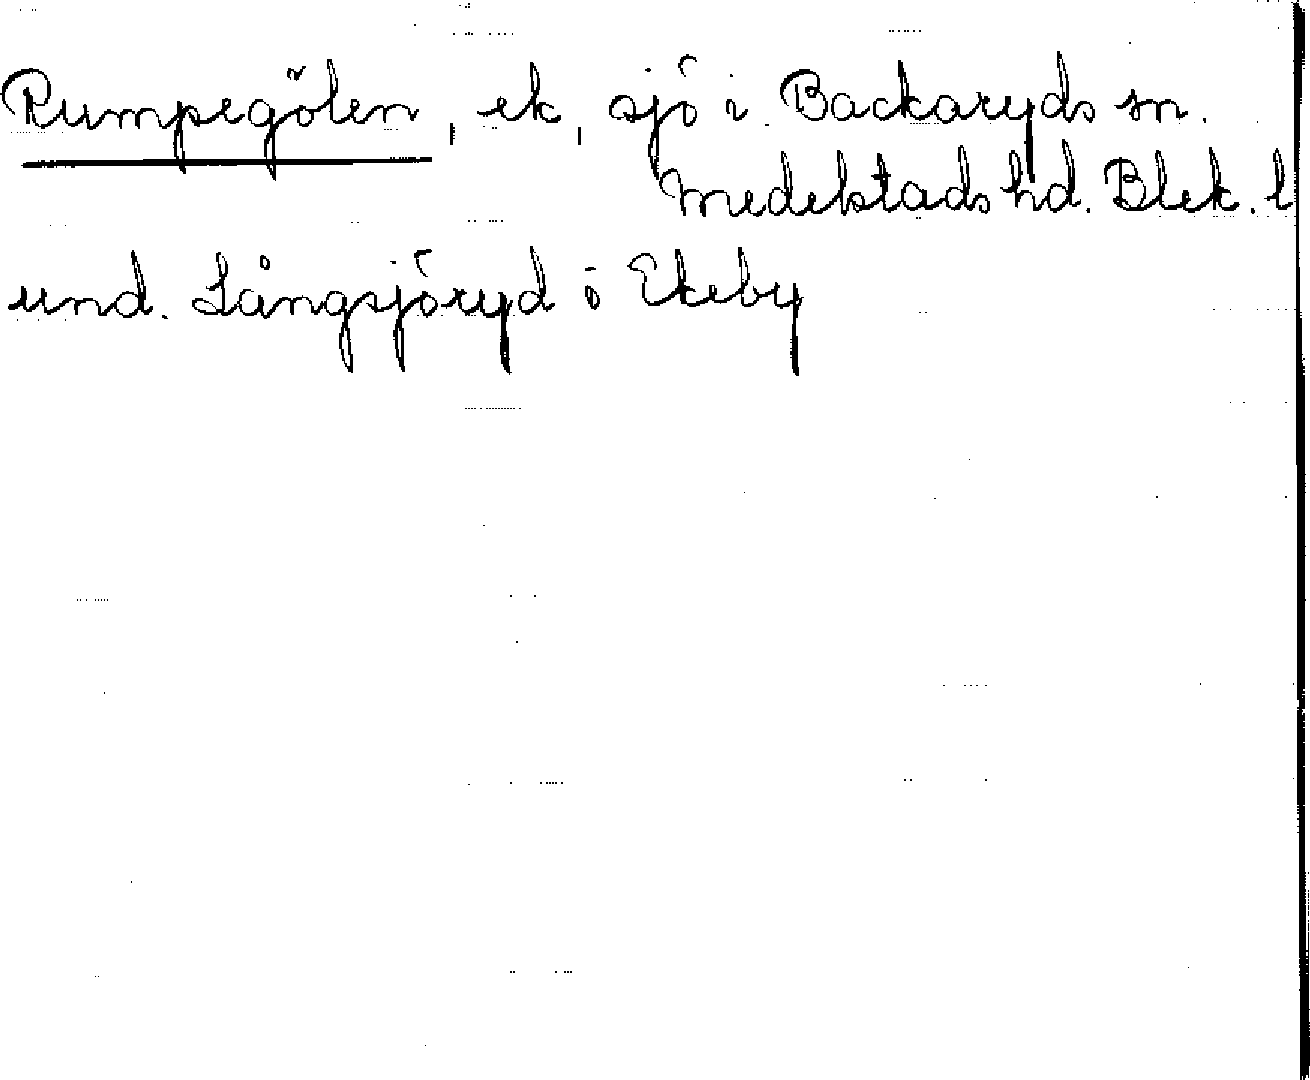 Rumpegölen, ek, sjö i Backaryds sn.
Medelstads hd. Blek. l
und. Långsjöryd ö Ekeby